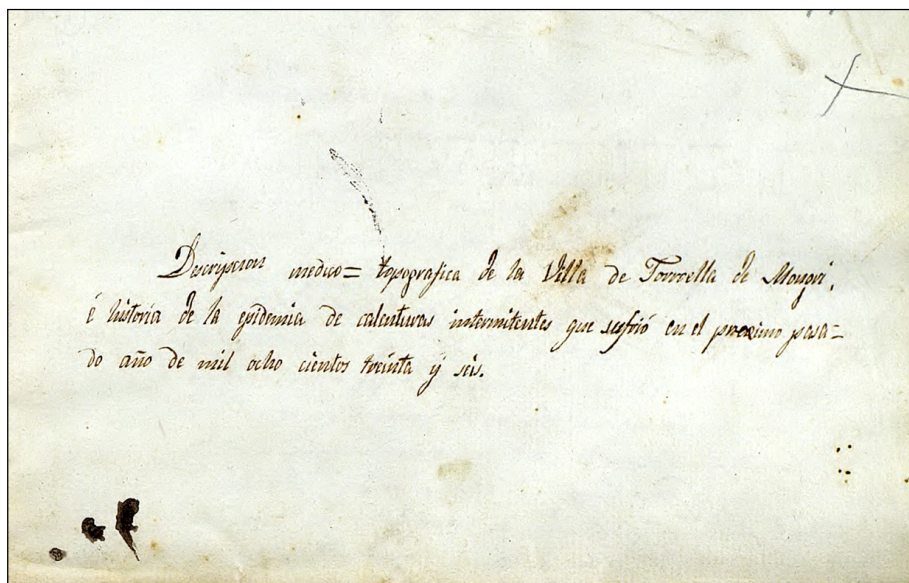 Descripcion medico= topografica de la Villa de Torroella de Mongri,
é historia de la epidemia de calenturas intermitentes que sufrió en el proximo pasa=
do año de mil ocho cientos treinta y seis.